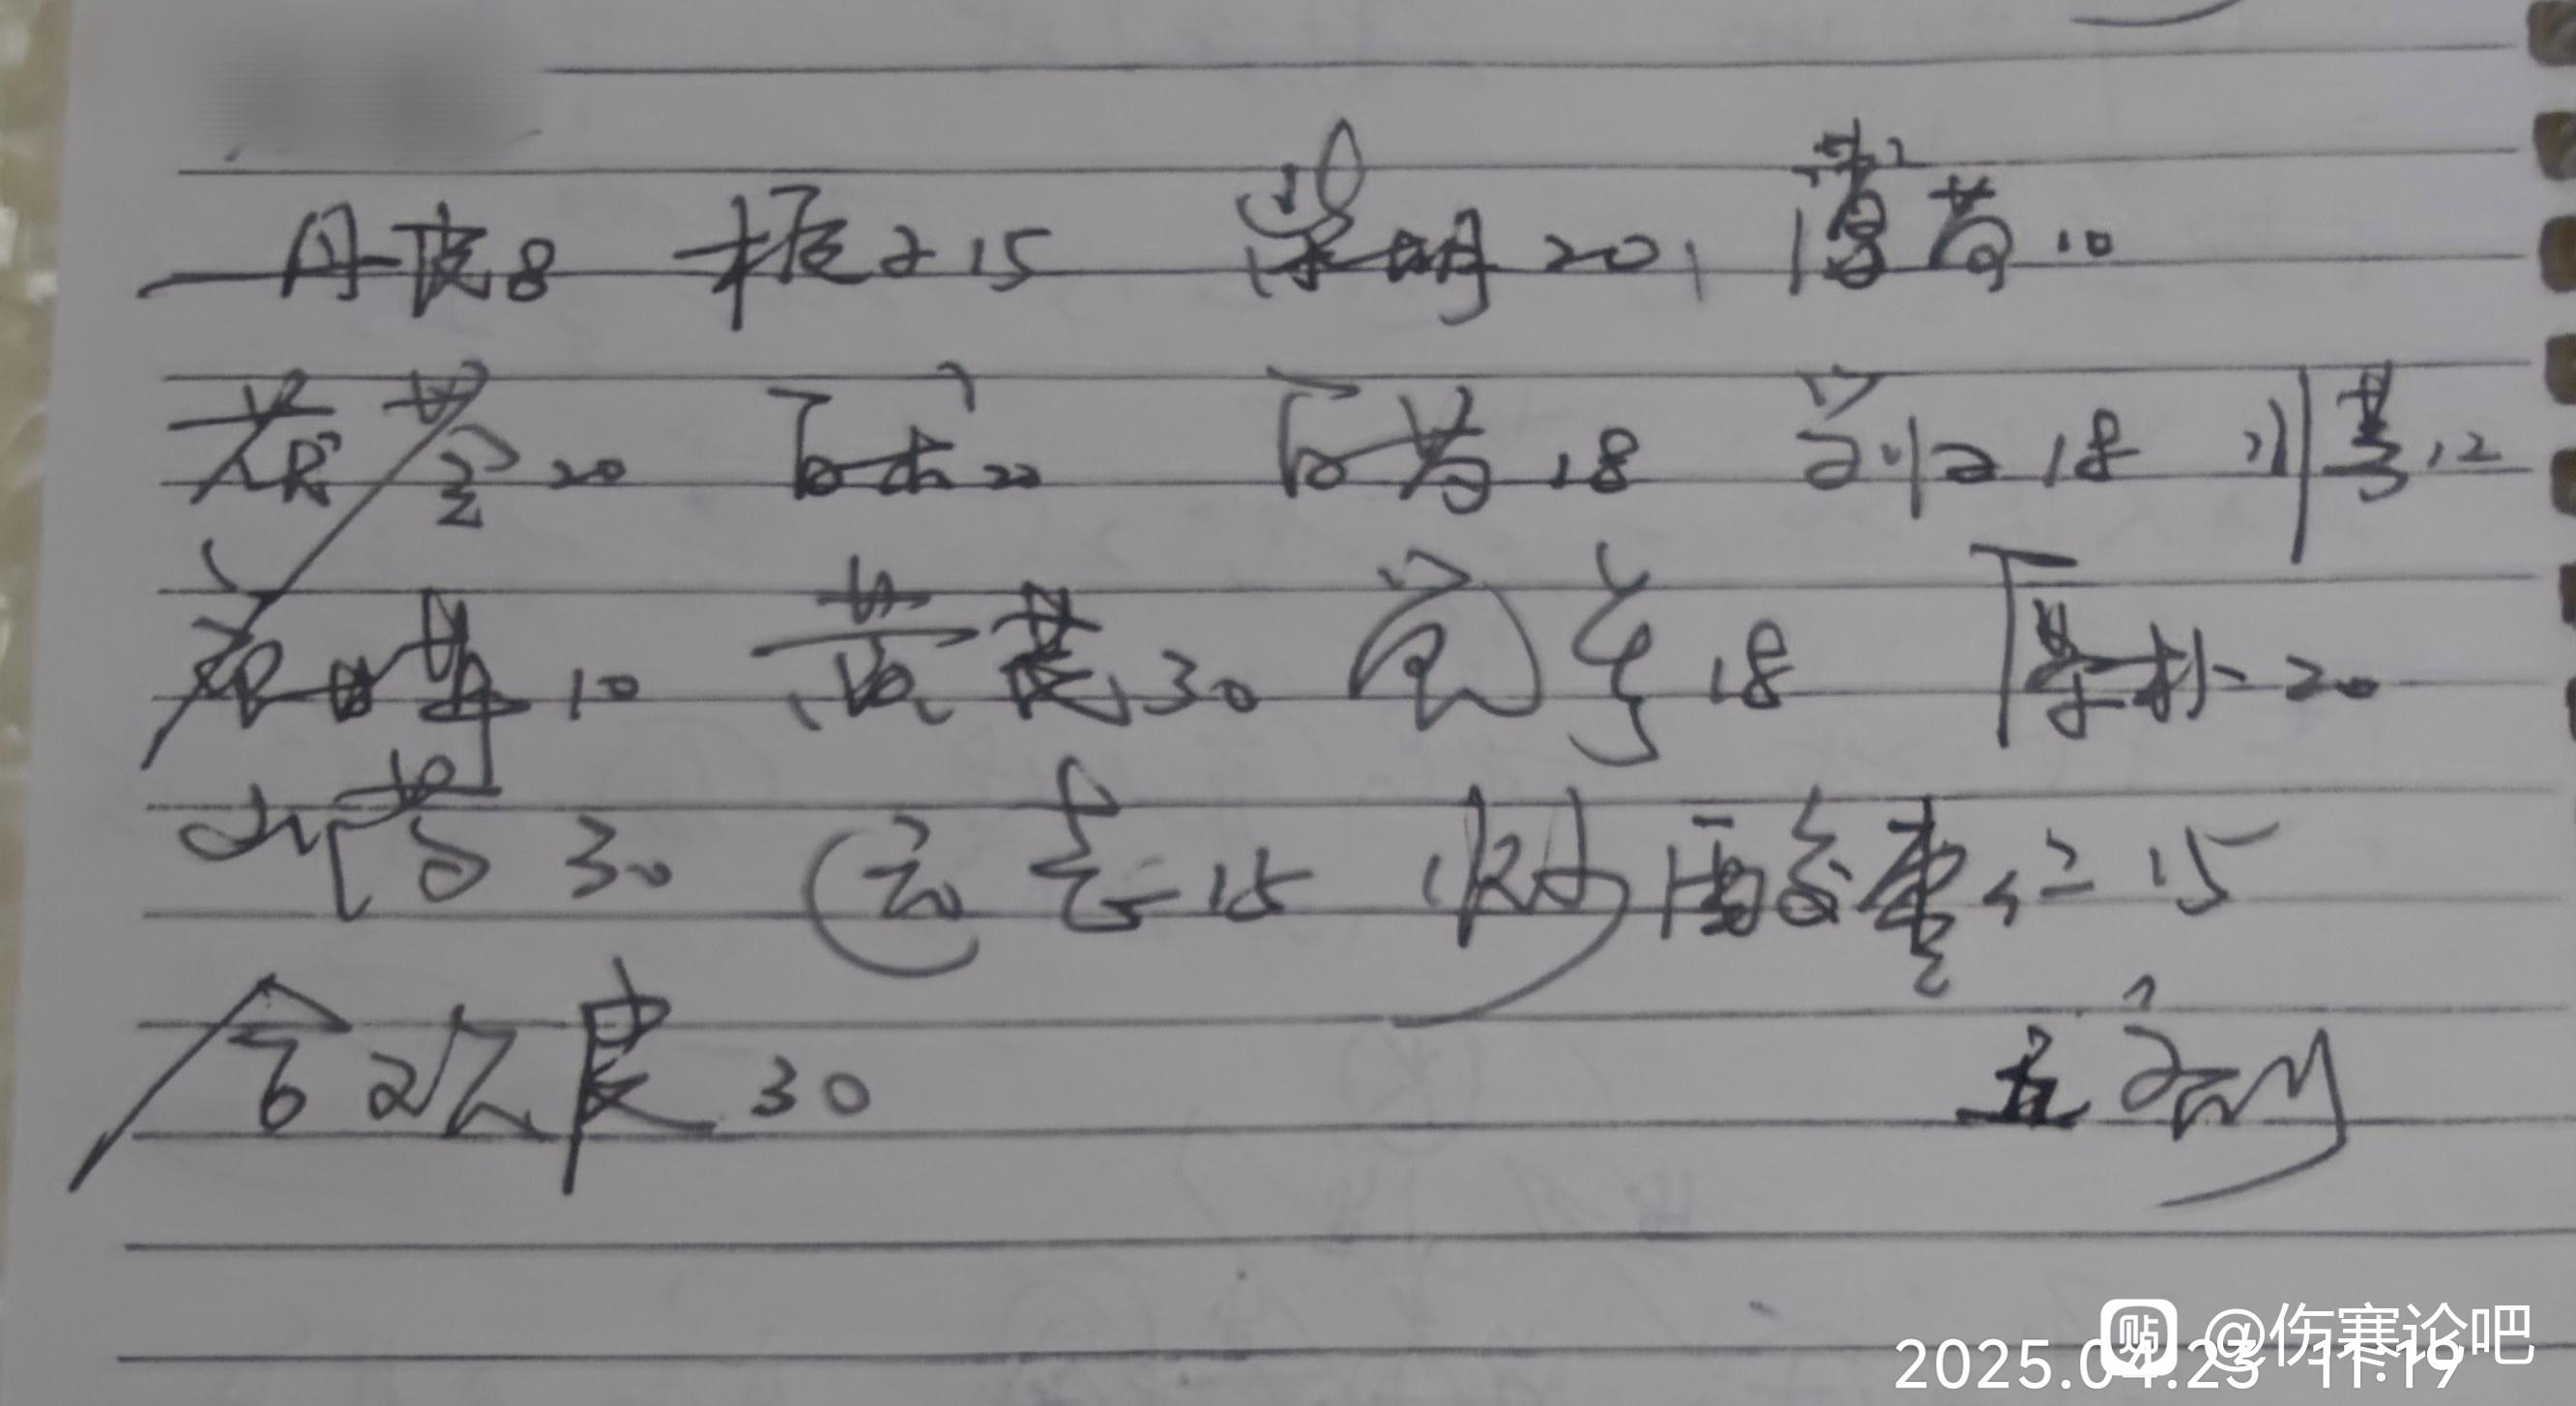 丹皮8 栀子15 柴胡20 薄荷10
茯苓20 白术20 白芍18 当归18 川芎12
益母草10 黄芪30 肉 18 厚朴20
30 远志15 炒酸枣仁15
合欢皮30 五剂
2025.04.23 11:19
贴 @伤寒论吧